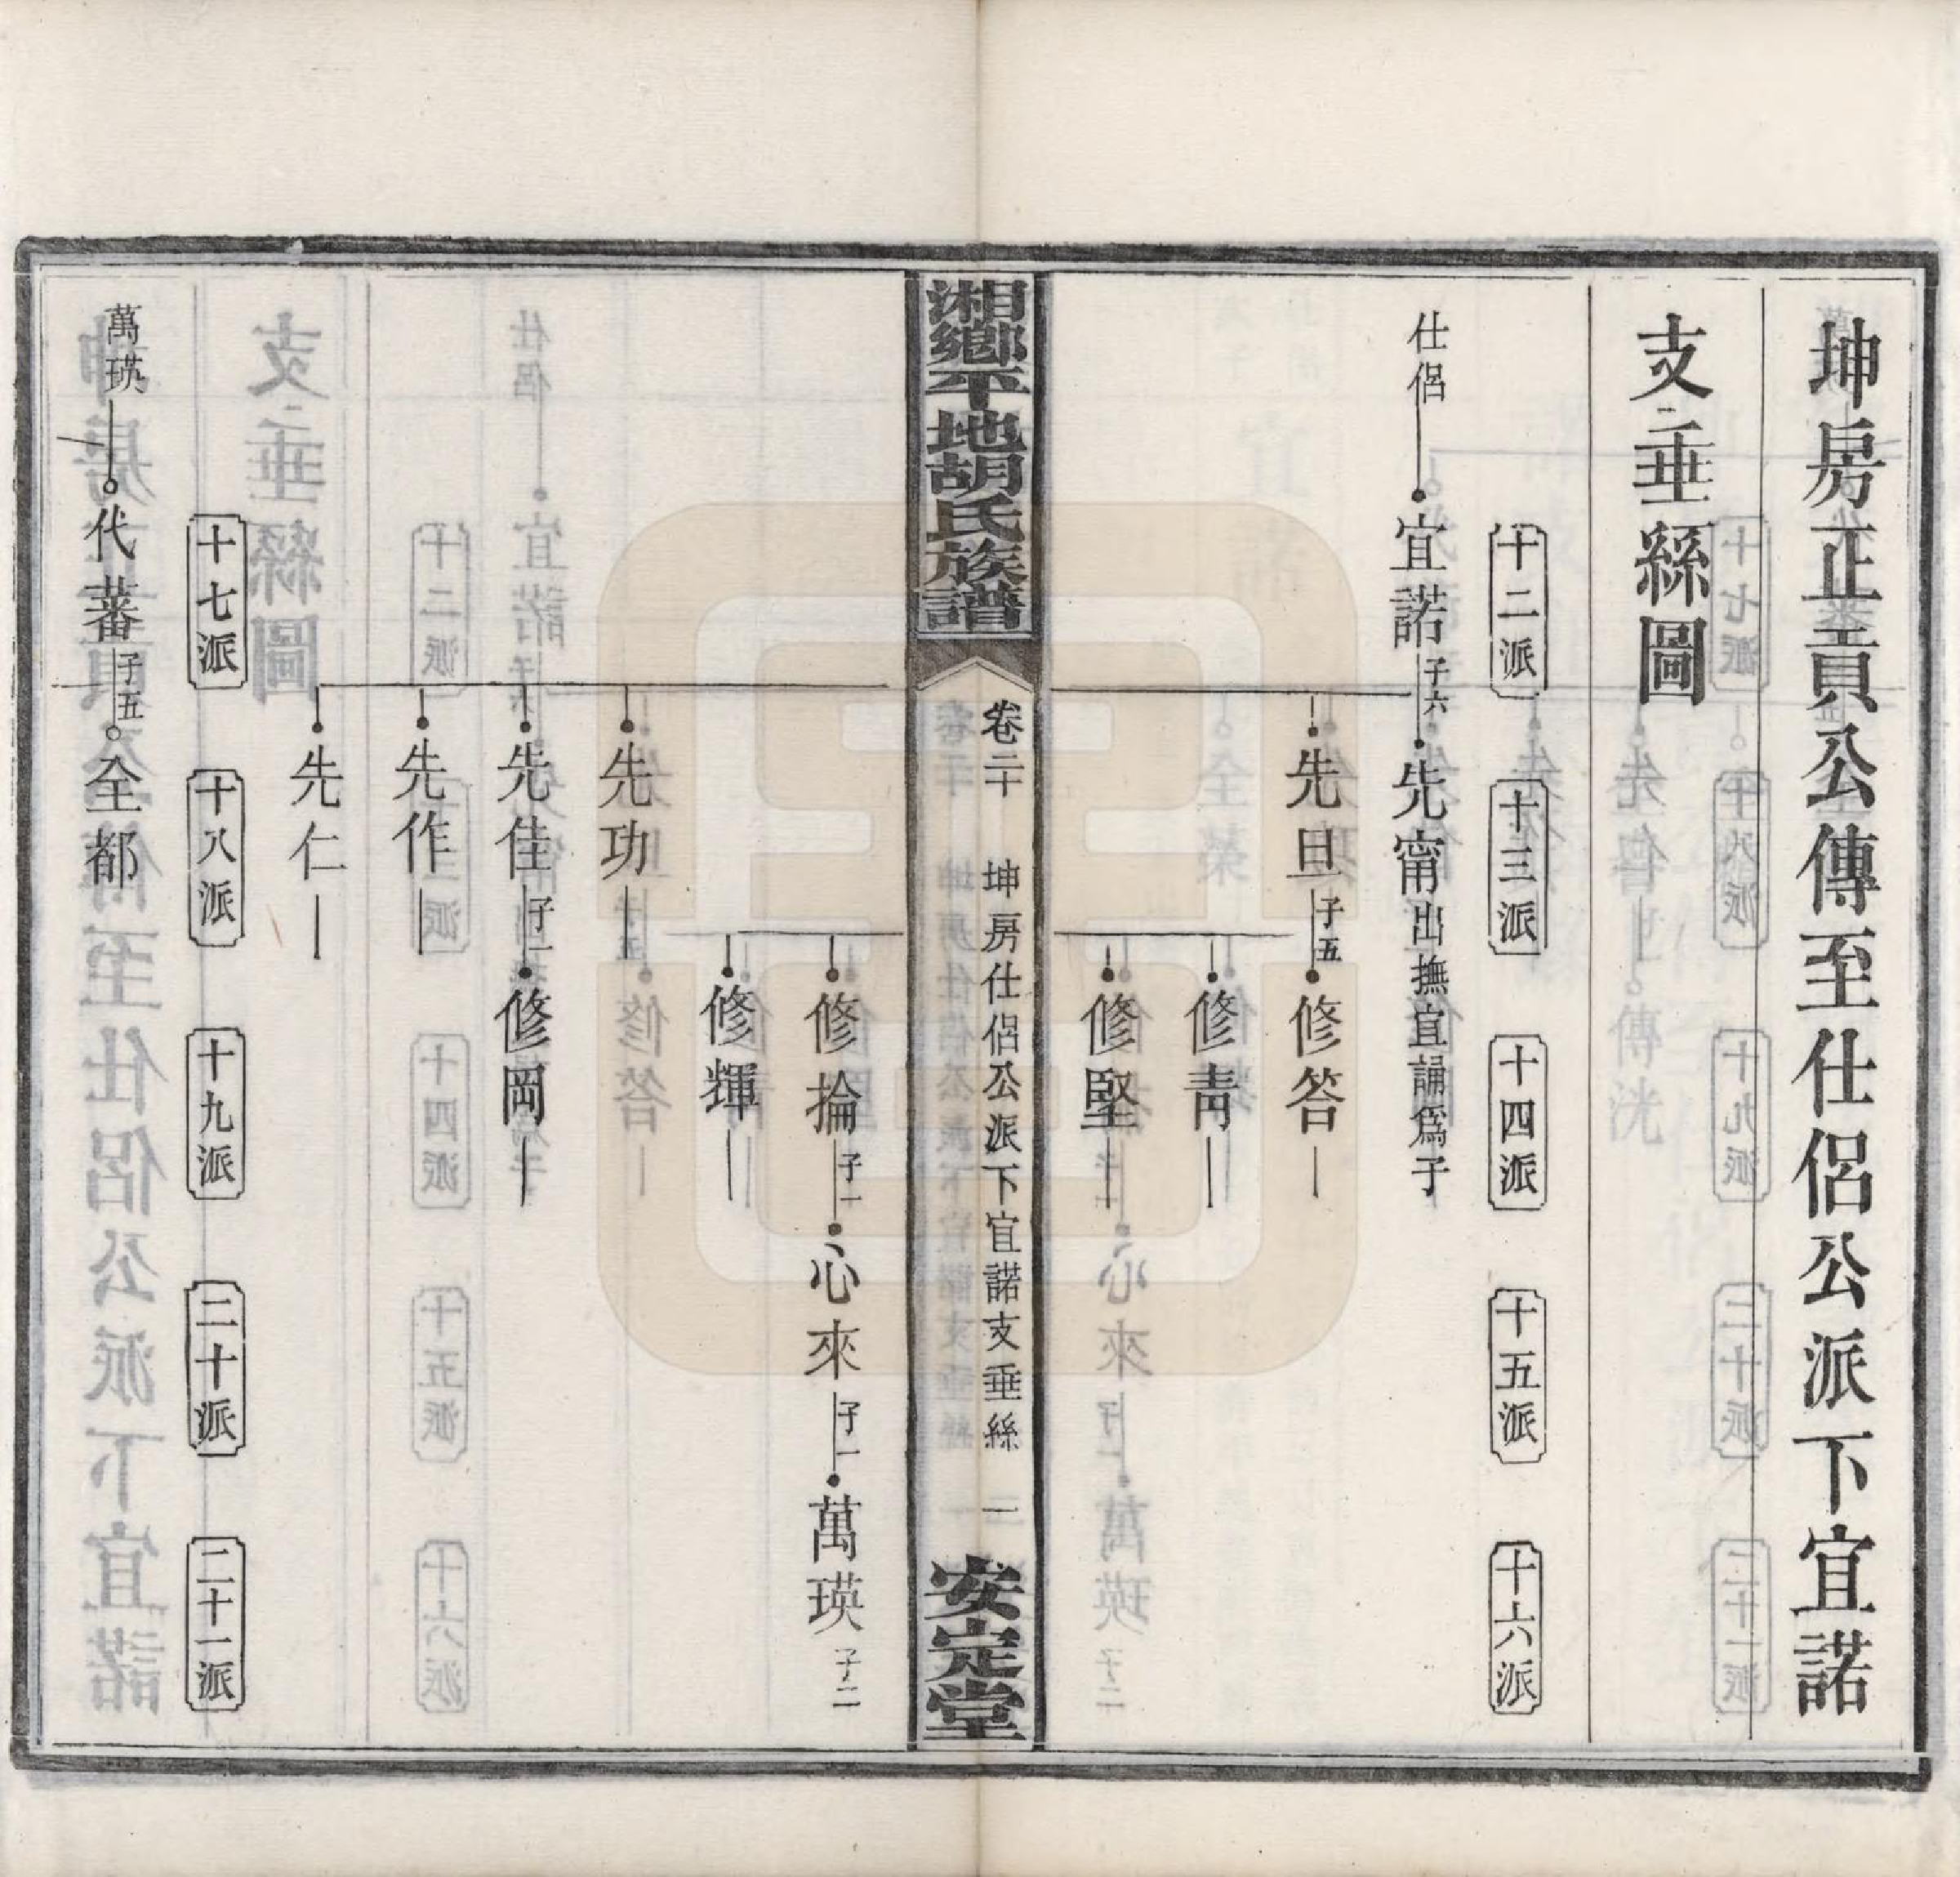 坤房正貢公傳至仕侶公派下宜諾
支垂絲圖
十二派
十三派
十四派
十五派
十六派
仕侶
宜諾子六
先甯出撫宜誦爲子
先旦子五
修答
修青
修堅
湘鄉平地胡氏族譜
卷二十
坤房仕侶公派下宜諾支垂絲
一
安定堂
修掄子一
心來子一
萬瑛子二
修輝
先功
先佳子一
修岡
先作
先仁
十七派
十八派
十九派
二十派
二十一派
萬瑛
代蕃子五
全都